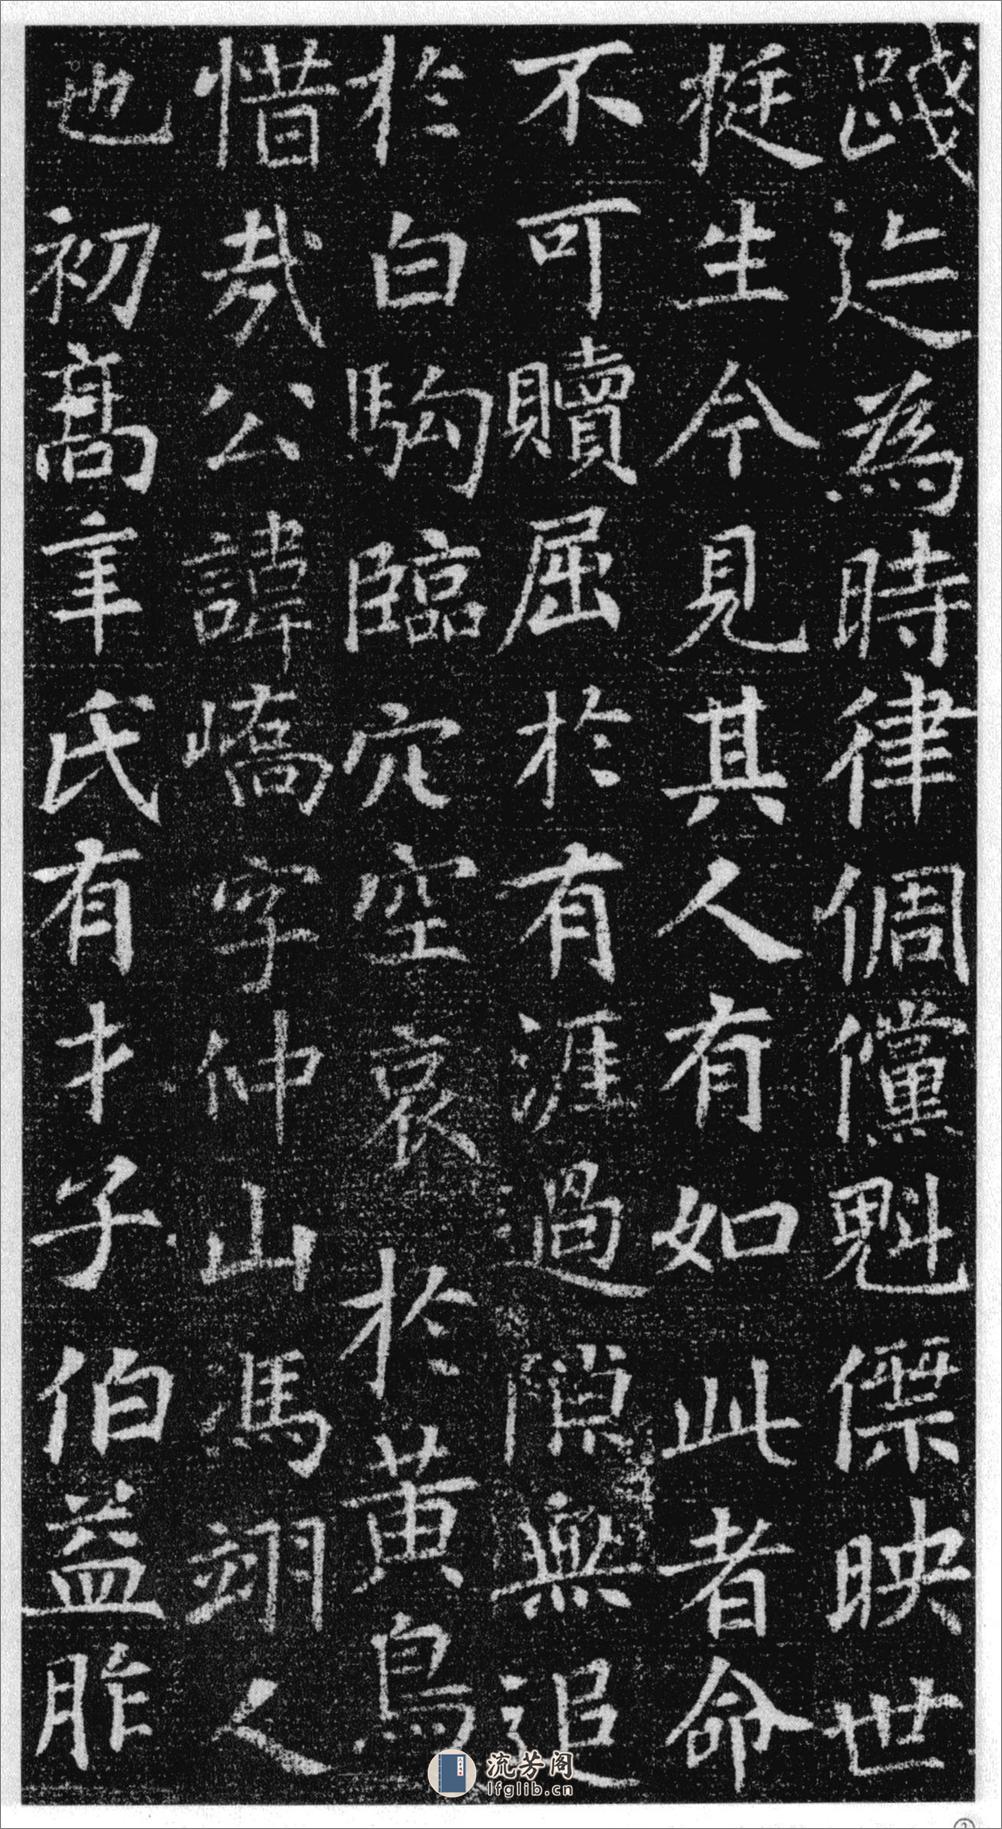 踐迩為時律倜儻魁傑映世
挺生今見其人有如此者命
不可贖屈於有涯過隙無追
於白駒臨穴空哀於黃鳥
惜哉公諱嶠字仲山馮翊人
也初高辛氏有才子伯益胙
流芳阁
lfglib.cn